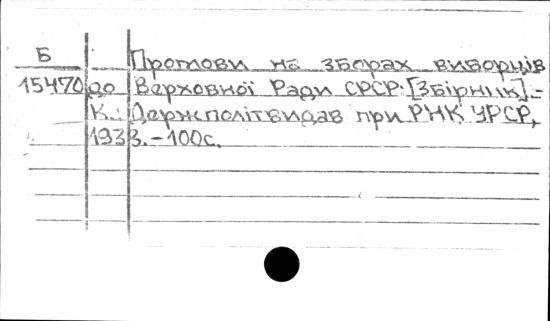 Б Промови на зборах виборців
15470 до Верховної Ради СРСР: [Збірник].-
К.: Держполітвидав при РНК УРСР,
1938.-100с.